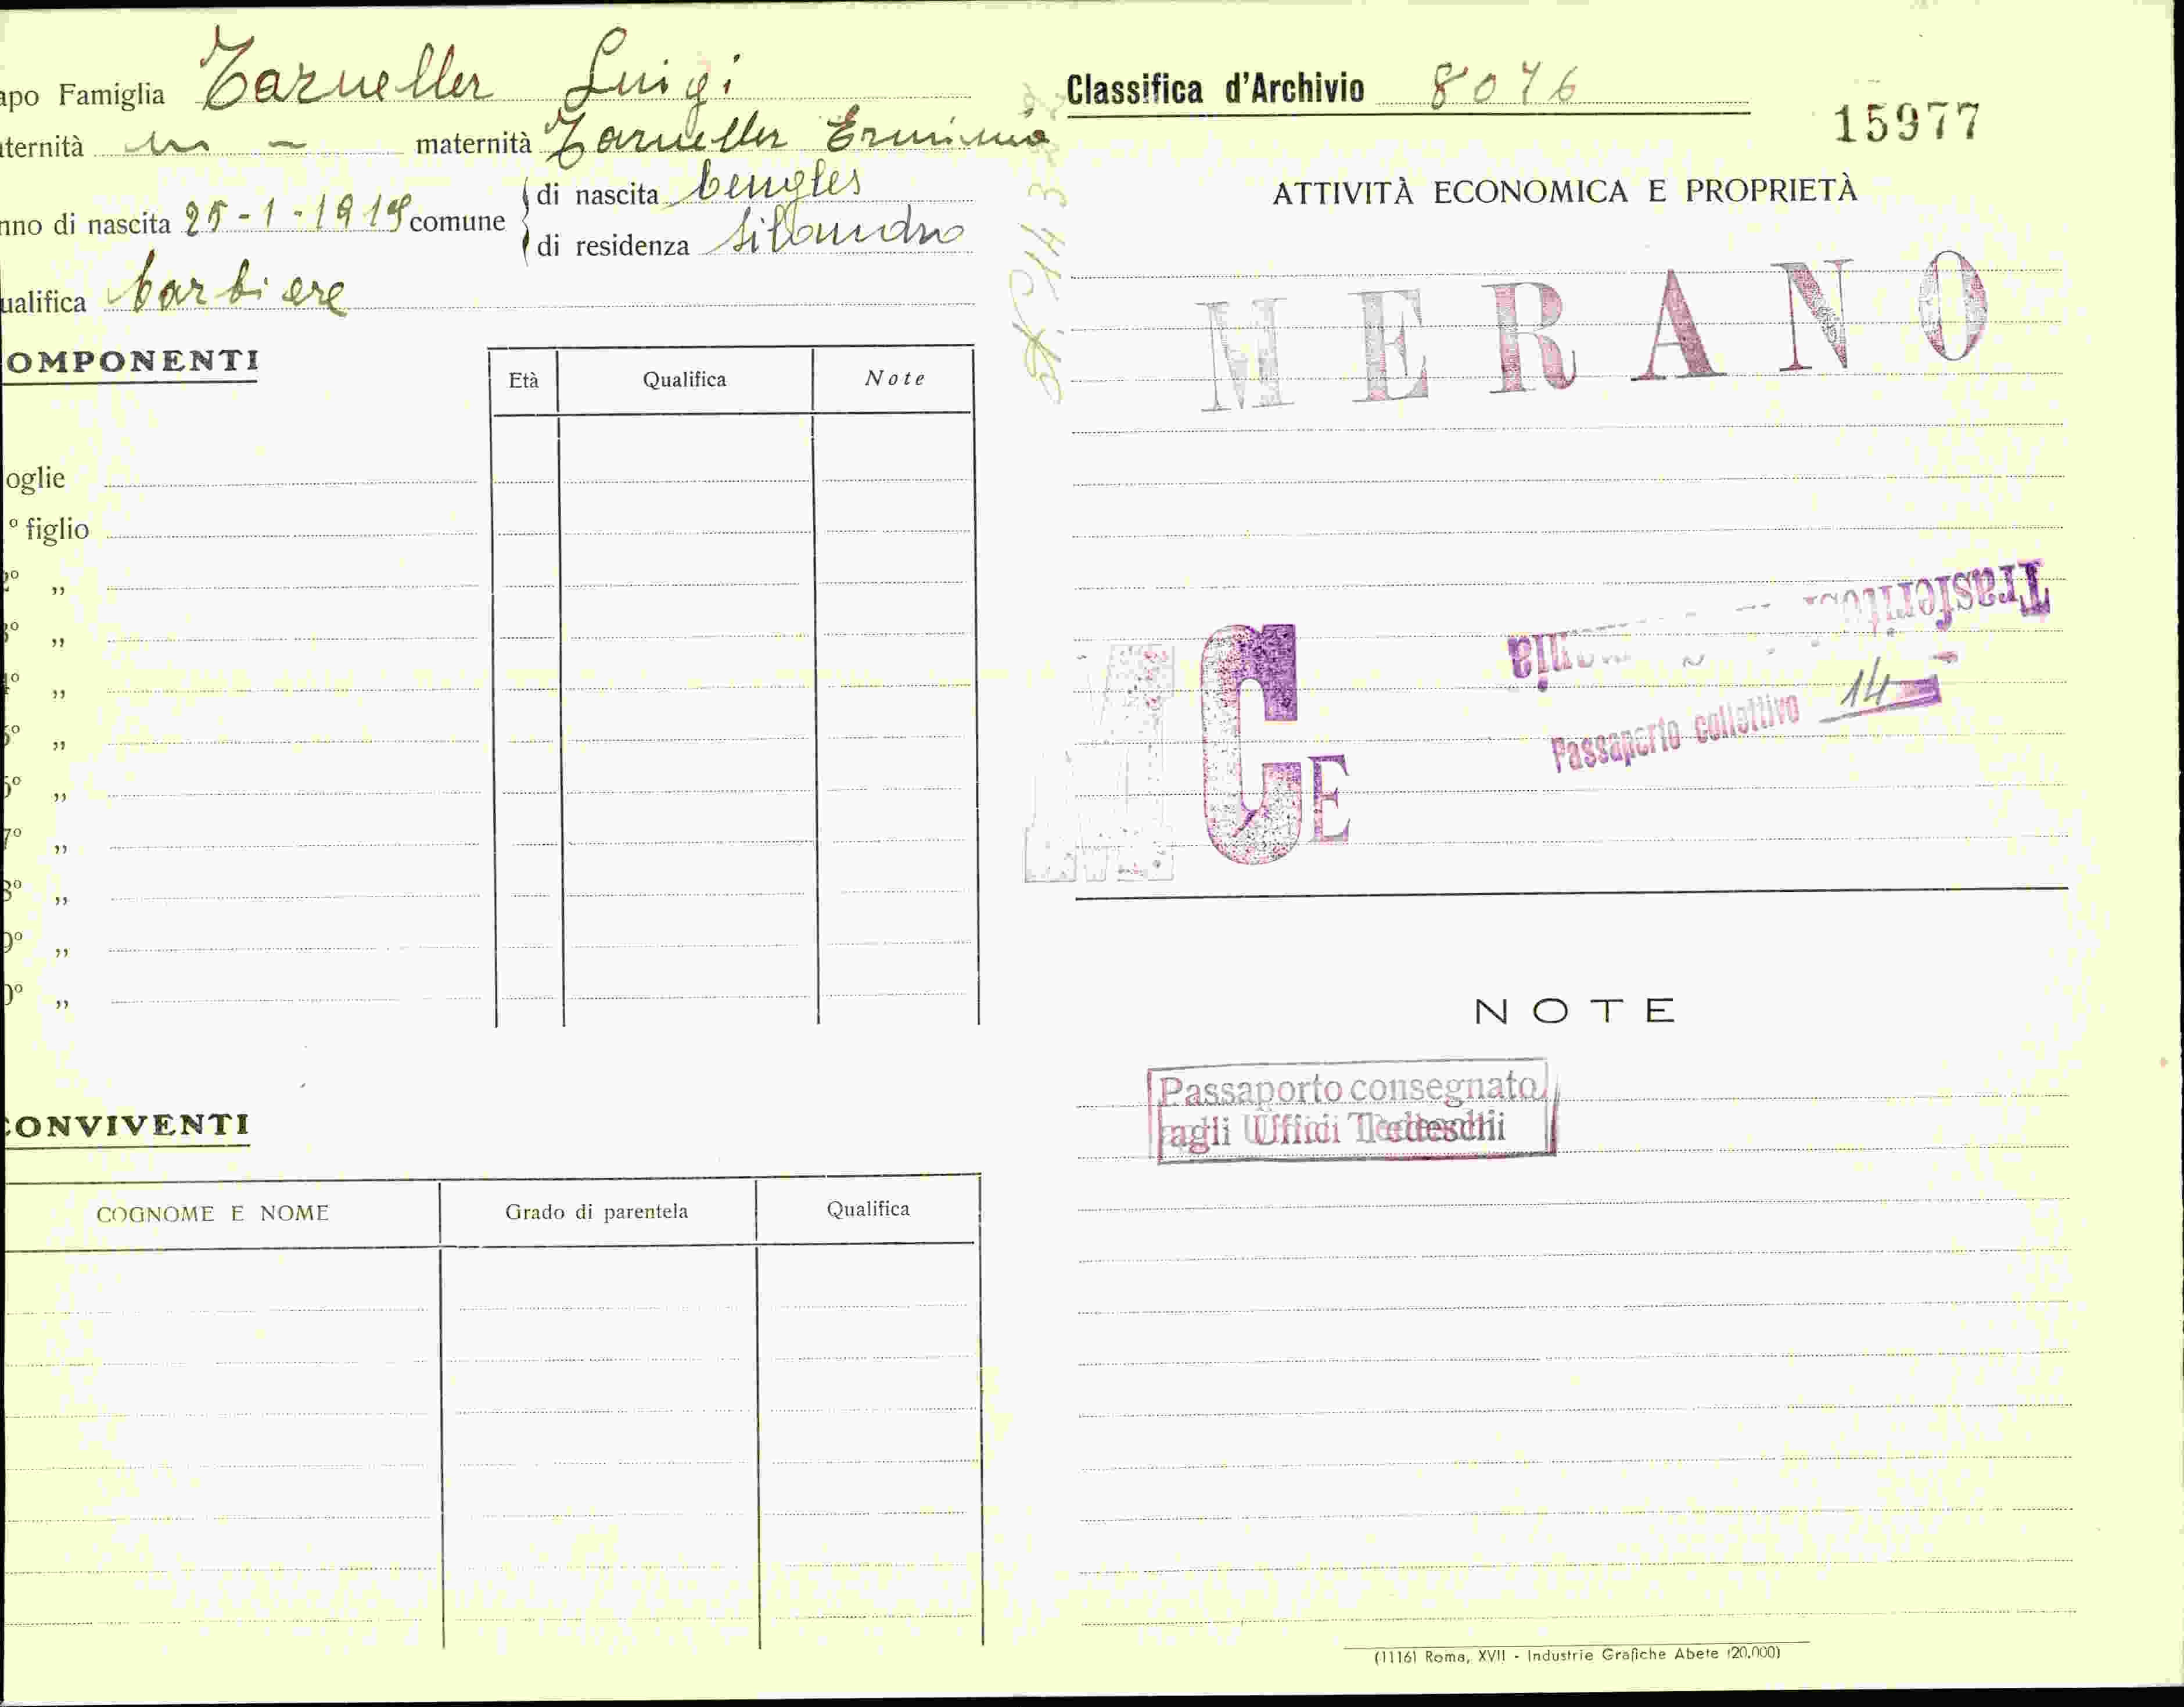 apo Famiglia Tarneller Luigi
ternità maternità Tarneller Erminia
nno di nascita 25-1-1919 comune di nascita
di residenza Silandro
ualifica barbiere
OMPONENTI
Età Qualifica Note
oglie
º figlio
2º „
3º „
4º „
5º „
6º „
7º „
8º „
9º „
0º „
CONVIVENTI
COGNOME E NOME Grado di parentela Qualifica
Classifica d'Archivio 8076
15977
ATTIVITÀ ECONOMICA E PROPRIETÀ
MERANO
CE
Passaporto collettivo 14
NOTE
Passaporto consegnato
agli Uffici Tedeschi
(1116) Roma, XVII - Industrie Grafiche Abete (20.000)